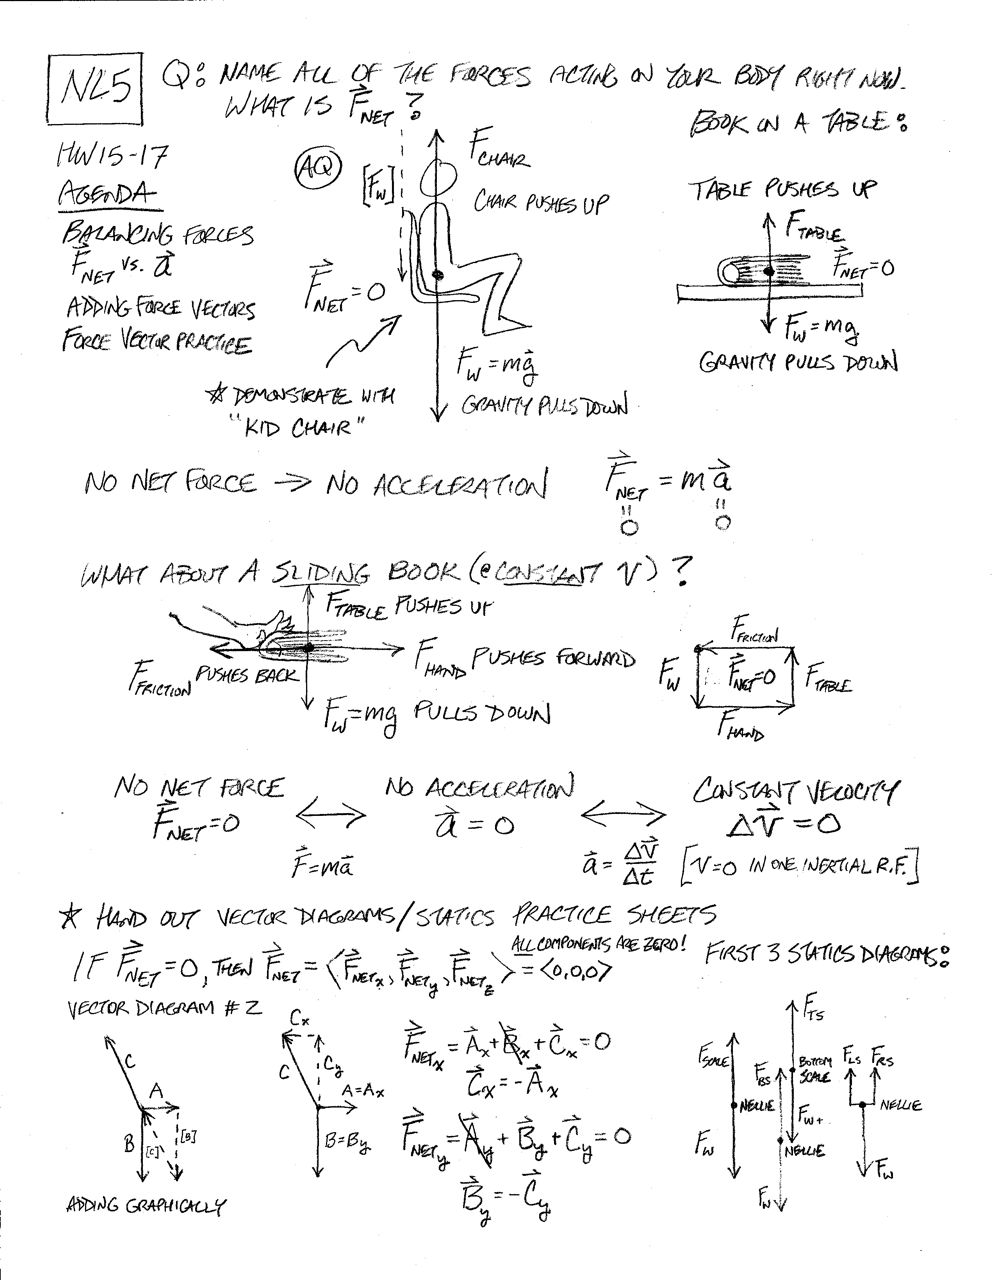 NL5
Q: NAME ALL OF THE FORCES ACTING ON YOUR BODY RIGHT NOW.
WHAT IS F_NET ?
HW15-17
AGENDA
BALANCING FORCES
F_NET vs. a
ADDING FORCE VECTORS
FORCE VECTOR PRACTICE
AQ
[F_W]
F_CHAIR
CHAIR PUSHES UP
F_NET = 0
☆ DEMONSTRATE WITH
"KID CHAIR"
F_W = mg
GRAVITY PULLS DOWN
BOOK ON A TABLE:
TABLE PUSHES UP
F_TABLE
F_NET = 0
F_W = mg
GRAVITY PULLS DOWN
NO NET FORCE → NO ACCELERATION
F_NET = ma
= =
0 0
WHAT ABOUT A SLIDING BOOK (@ CONSTANT V) ?
F_TABLE PUSHES UP
F_FRICTION PUSHES BACK
F_HAND PUSHES FORWARD
F_W = mg PULLS DOWN
F_FRICTION
F_W
F_NET = 0
F_TABLE
F_HAND
NO NET FORCE
F_NET = 0
↔
F = ma
NO ACCELERATION
a = 0
↔
a = ΔV/Δt
CONSTANT VELOCITY
ΔV = 0
[V=0 IN ONE INERTIAL R.F.]
☆ HAND OUT VECTOR DIAGRAMS/STATICS PRACTICE SHEETS
ALL COMPONENTS ARE ZERO!
IF F_NET = 0, THEN F_NET = ⟨F_NETx, F_NETy, F_NETz⟩ = <0,0,0>
VECTOR DIAGRAM # 2
C
A
B
[C]
[B]
ADDING GRAPHICALLY
Cx
C
Cy
A=Ax
B=By
F_NETx = Ax + Bx + Cx = 0
Cx = -Ax
F_NETy = Ay + By + Cy = 0
By = -Cy
FIRST 3 STATICS DIAGRAMS:
F_SCALE
NELLIE
F_W
F_TS
BOTTOM
SCALE
F_BS
F_W+
NELLIE
F_W
F_LS
F_RS
NELLIE
F_W